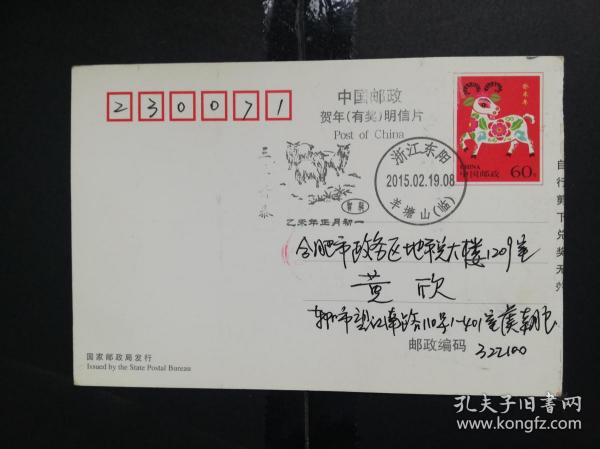 230071
中国邮政
贺年(有奖)明信片
Post of China
癸未年
CHINA
中国邮政
60分
浙江东阳
2015.02.19.08
羊塘山(临)
乙未年正月初一
合肥市政务区地税大楼1209室
黄欣
东阳市望江南路110号1-401室
邮政编码
322100
自行剪下兑奖无效
国家邮政局发行
Issued by the State Postal Bureau
孔夫子旧书网
www.kongfz.com